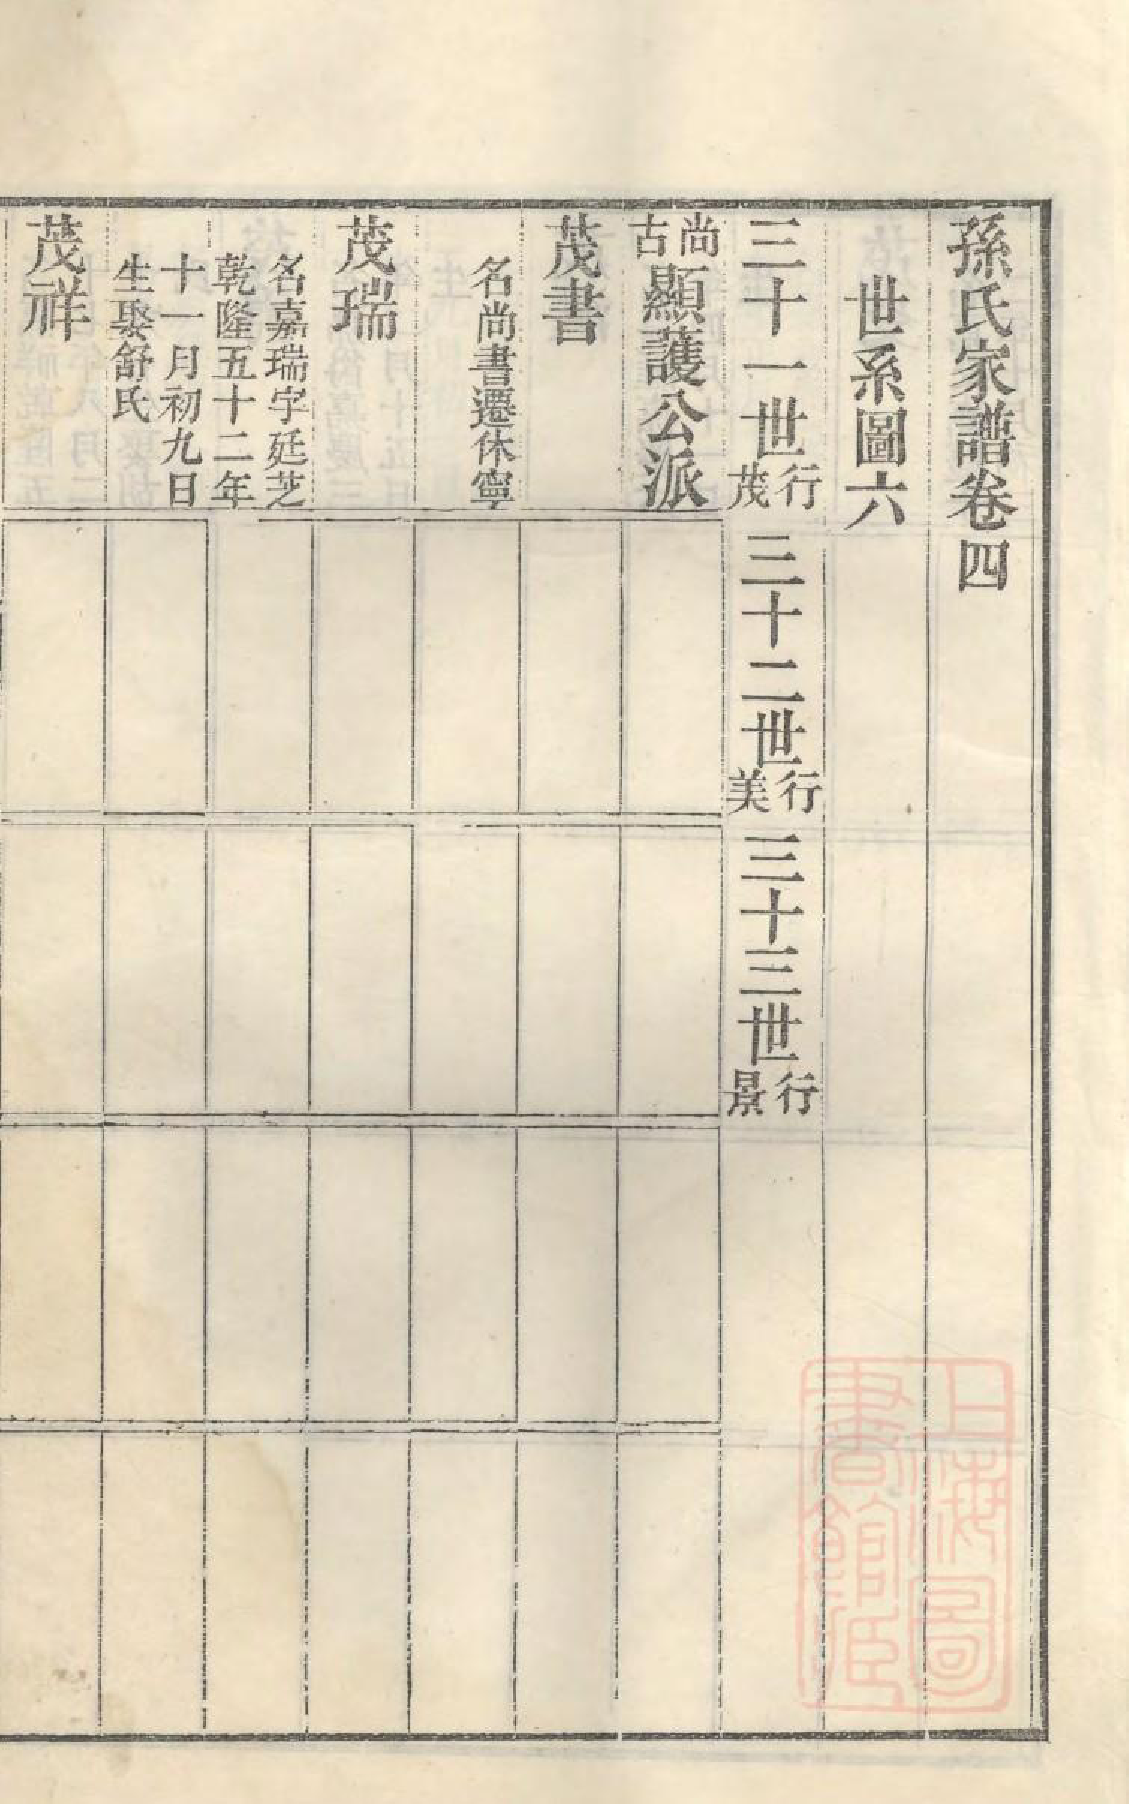 孫氏家譜卷四
世系圖六
三十一世行茂
三十二世行美
三十三世行景
尚古顯護公派
茂書
名尚書遷休寧
茂瑞
名嘉瑞字廷芝
乾隆五十二年
十一月初九日
生娶舒氏
茂祥
上海圖
書館藏